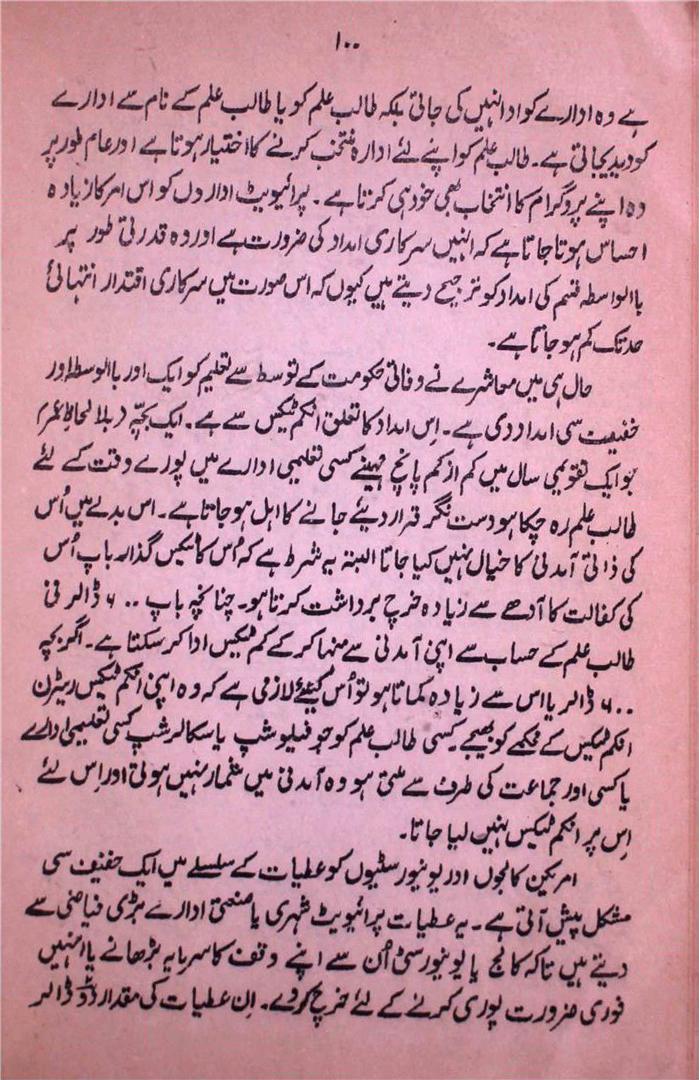 ۱۰۰
ہے وہ ادارے کو ادا نہیں کی جاتی بلکہ طالب علم کو یا طالب علم کے نام سے ادارے
کو دیدی جاتی ہے۔ طالب علم کو اپنے لئے ادارہ منتخب کرنے کا اختیار ہوتا ہے اور عام طور پر
وہ اپنے پروگرام کا انتخاب بھی خود ہی کرتا ہے۔ پرائیویٹ اداروں کو اس امر کا زیادہ
احساس ہوتا جاتا ہے کہ انہیں سرکاری امداد کی ضرورت ہے اور وہ قدرتی طور پر
باالواسطہ قسم کی امداد کو ترجیح دیتے ہیں کیوں کہ اس صورت میں سرکاری اقتدار انتہائی
حد تک کم ہو جاتا ہے۔
حال ہی میں معاشرے نے وفاقی حکومت کے توسط سے تعلیم کو ایک اور باالوسطہ اور
خفیف سی امداد دی ہے۔ اِس امداد کا تعلق انکم ٹیکس سے ہے۔ ایک بچّہ (بلا لحاظ عمر)
جو ایک تقویمی سال میں کم از کم پانچ مہینے کسی تعلیمی ادارے میں پورے وقت کے لئے
طالب علم رہ چکا ہو دست نگر قرار دیئے جانے کا اہل ہو جاتا ہے۔ اس بدلے میں اُس
کی ذاتی آمدنی کا خیال نہیں کیا جاتا البتہ یہ شرط ہے کہ اُس کا ٹیکس گذار باپ اُس
کی کفالت کا آدھے سے زیادہ خرچ برداشت کرتا ہو۔ چنانچہ باپ ۶۰۰ ڈالر فی
طالب علم کے حساب سے اپنی آمدنی سے منہا کر کے کم ٹیکس ادا کر سکتا ہے۔ اگر بچہ
۶۰۰ ڈالر یا اس سے زیادہ کماتا ہو تو اُس کیلئے لازمی ہے کہ وہ اپنی انکم ٹیکس ریٹرن
انکم ٹیکس کے محکمے کو بھیجے۔ کسی طالب علم کو جو فیلوشپ یا سکالرشپ کسی تعلیمی ادارے
یا کسی اور جماعت کی طرف سے ملتی ہو وہ آمدنی میں شمار نہیں ہوتی اور اِس لئے
اِس پر انکم ٹیکس نہیں لیا جاتا۔
امریکن کالجوں اور یونیورسٹیوں کو عطیات کے سلسلے میں ایک خفیف سی
مشکل پیش آتی ہے۔ یہ عطیات پرائیویٹ شہری یا صنعتی ادارے بڑی فیاضی سے
دیتے ہیں تاکہ کالج یا یونیورسٹی اُن سے اپنے وقف کا سرمایہ بڑھائے یا انہیں
فوری ضرورت پوری کرنے کے لئے خرچ کر دے۔ اِن عطیات کی مقدار دو ڈالر